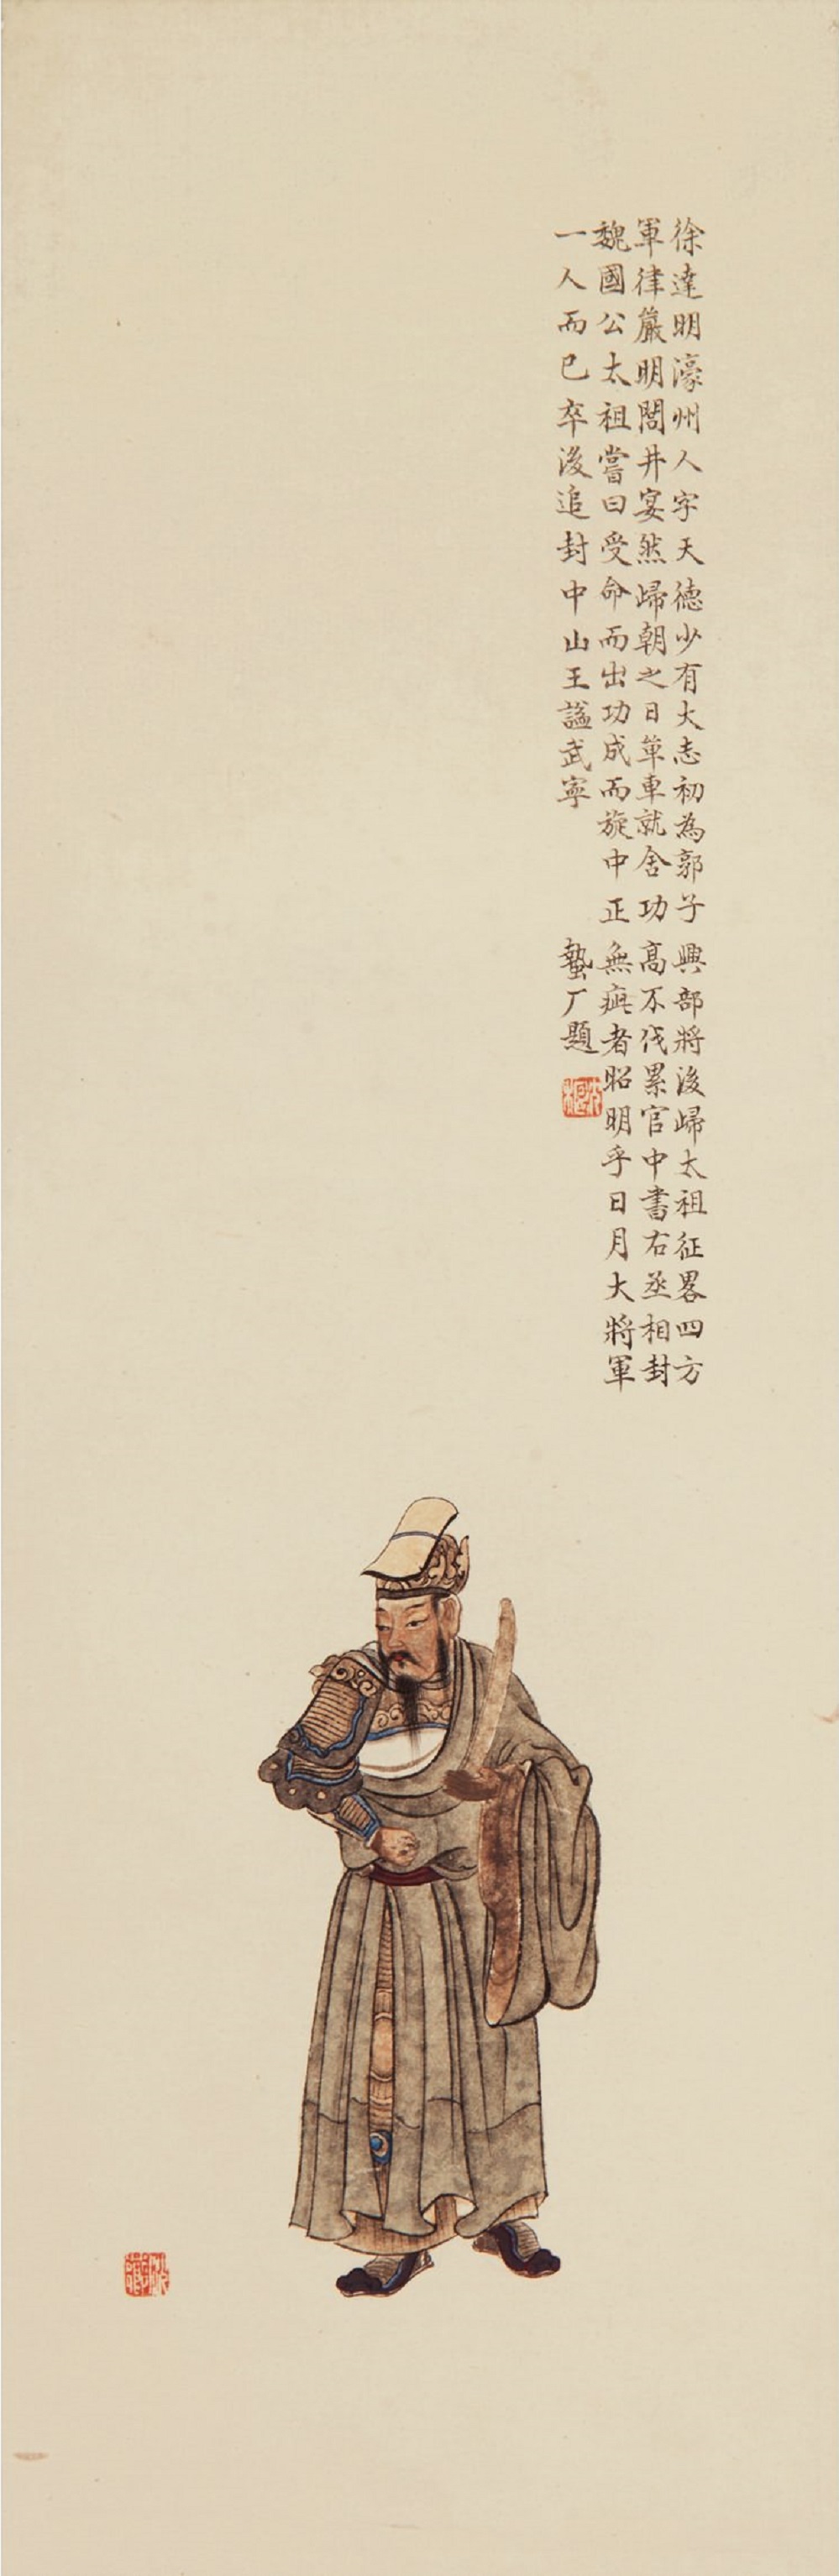 徐達明濠州人字天德少有大志初為郭子興部將後歸太祖征畧四方
軍律嚴明閭井宴然歸朝之日單車就舍功高不伐累官中書右丞相封
魏國公太祖嘗曰受命而出功成而旋中正無疵者昭明乎日月大將軍
一人而已卒後追封中山王諡武寧
蟄厂題